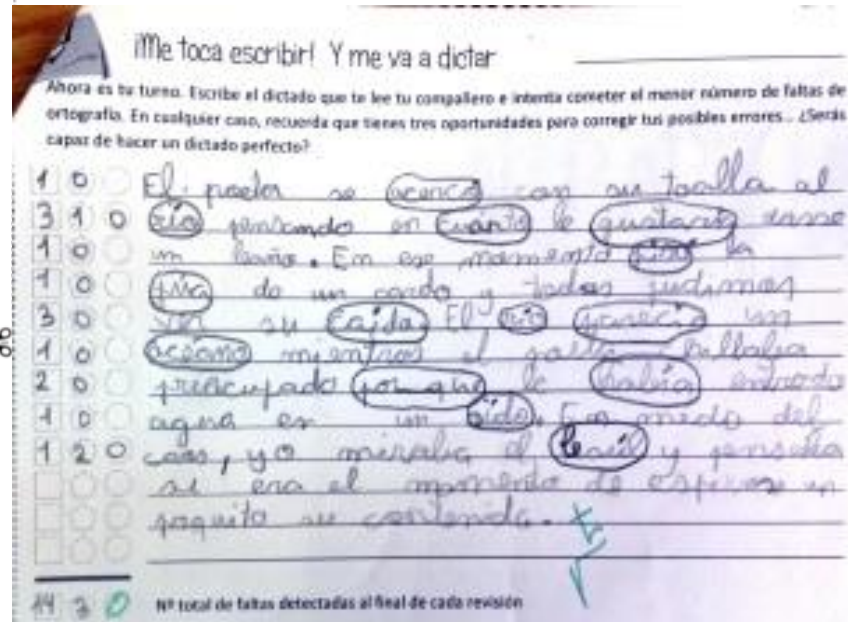 ¡Me toca escribir! Y me va a dictar
Ahora es tu turno. Escribe el dictado que te lee tu compañero e intenta cometer el menor número de faltas de
ortografía. En cualquier caso, recuerda que tienes tres oportunidades para corregir tus posibles errores... ¿Serás
capaz de hacer un dictado perfecto?
1 0 El se acercó con su toalla al
3 1 0 río pensando en cuánto le gustaría darse
1 0 un baño. En ese momento la
1 0 púa de un y todos pudimos
3 0 ver su caída. El río parecía un
1 0 océano mientras el
2 0 preocupado porque le había entrado
1 0 agua en un oído. En medio del
1 2 0 caos, yo miraba el baúl y pensaba
si era el momento de en
poquito su contenido.
14 3 0 Nº total de faltas detectadas al final de cada revisión